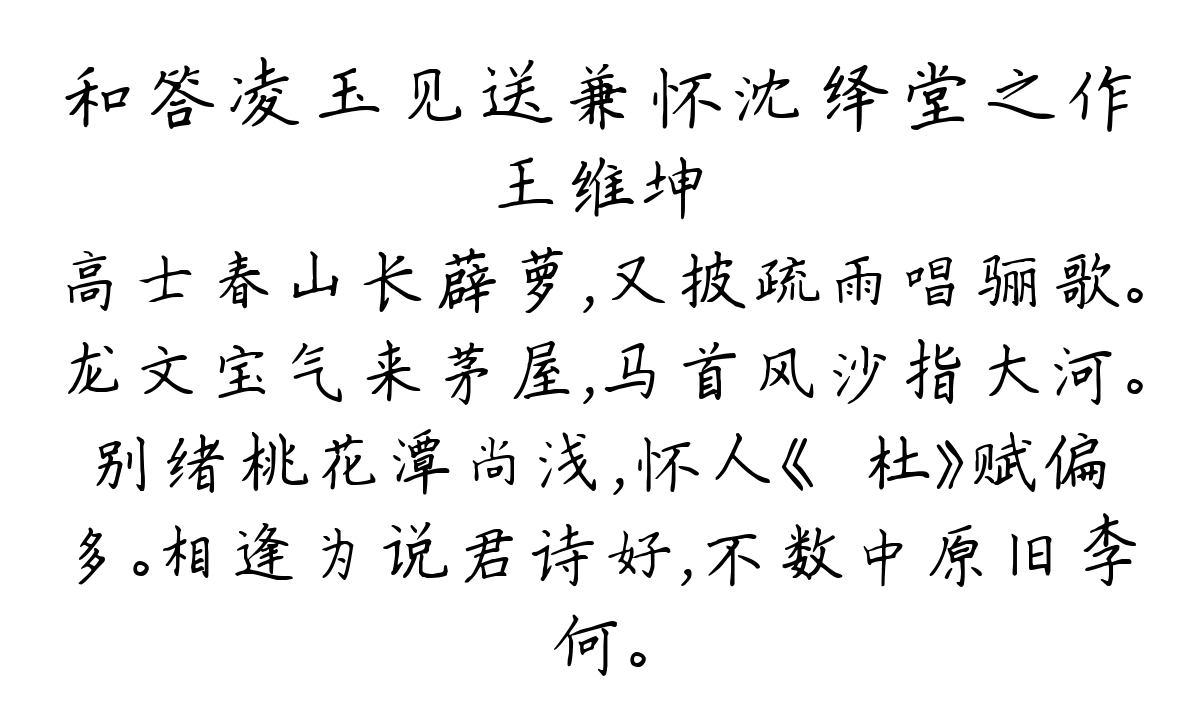 和答凌玉见送兼怀沈绎堂之作
王维坤
高士春山长薜萝,又披疏雨唱骊歌。
龙文宝气来茅屋,马首风沙指大河。
别绪桃花潭尚浅,怀人《 杜》赋偏
多。相逢为说君诗好,不数中原旧李
何。